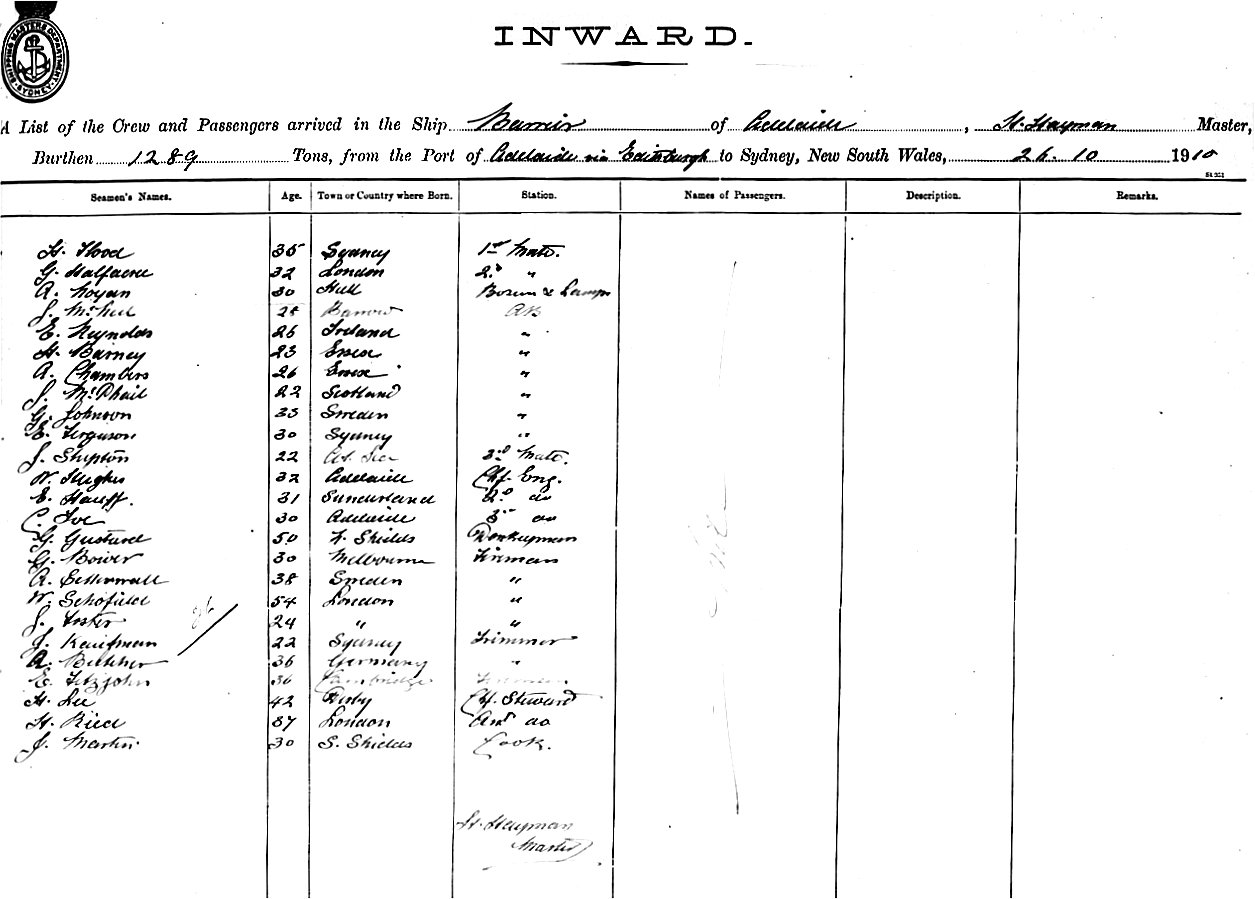 SHIPPING MASTERS DEPARTMENT SYDNEY
INWARD.
A List of the Crew and Passengers arrived in the Ship Barrier of Adelaide, H. Hayman Master,
Burthen 1289 Tons, from the Port of Adelaide via Edithburgh to Sydney, New South Wales, 26. 10 1910
Seamen's Names. Age. Town or Country where Born. Station. Names of Passengers. Description. Remarks.
H. Flood 35 Sydney 1st Mate.
G. Halfacre 32 London 2nd "
A. 30 Hull Bosun & Lamps
J. McNeil Barrow AB
E. Reynolds 26 Ireland "
H. Barney 23 Essex "
A. Chambers 26 Essex "
J. McPhail 22 Scotland "
G. Johnson 33 Sweden "
E. Ferguson 30 Sydney "
J. Shipton 22 At Sea 3rd Mate.
W. Hughes 32 Adelaide Chf. Eng.
E. Hauff. 31 Sunderland 2nd do
C. 30 Adelaide 3rd do
G. Gustard 50 N. Shields Donkeyman
G. Bower 30 Melbourne Fireman
A. 38 Sweden "
W. Schofield 54 London "
J. Foster 24 " "
J. Kaufman 22 Sydney Trimmer
A. Butcher 36 Germany "
E. Fitzjohn 36 Cambridge Fireman
H. Lee 42 Derby Chf. Steward
H. Ried 37 London 2nd do
J. Martin 30 S. Shields Cook.
Nil
H. Hayman
Master